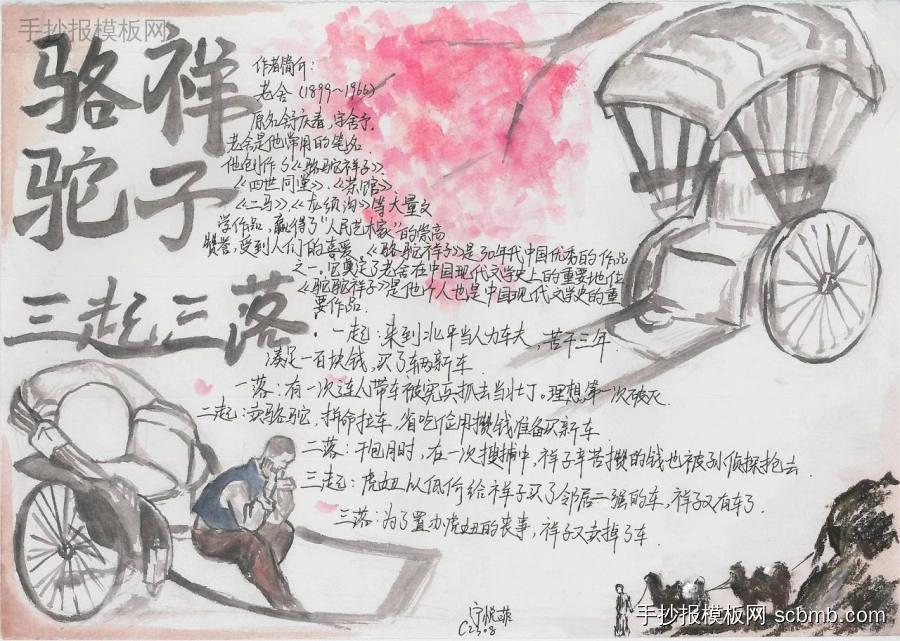 手抄报模板网
骆驼祥子
三起三落
作者简介:
老舍(1899~1966)
原名舒庆春,字舍予.
老舍是他常用的笔名
他创作了《骆驼祥子》、
《四世同堂》、《茶馆》
《二马》、《龙须沟》等大量文
学作品,赢得了“人民艺术家”的崇高
赞誉,受到人们的喜爱.《骆驼祥子》是30年代中国优秀的作品
之一,它奠定了老舍在中国现代文学史上的重要地位
《骆驼祥子》是他个人也是中国现代文学史的重
要作品.
·一起:来到北平当人力车夫,苦干三年.
凑足一百块钱,买了辆新车.
一落:有一次连人带车被宪兵抓去当壮丁。理想第一次破灭.
二起:卖骆驼,拼命拉车,省吃俭用攒钱准备买新车.
二落:干包月时,在一次搜捕中,祥子辛苦攒的钱也被孙侦探抢去.
三起:虎妞以低价给祥子买了邻居二强的车,祥子又有车了.
三落:为了置办虎妞的丧事,祥子又卖掉了车.
手抄报模板网 scbmb.com